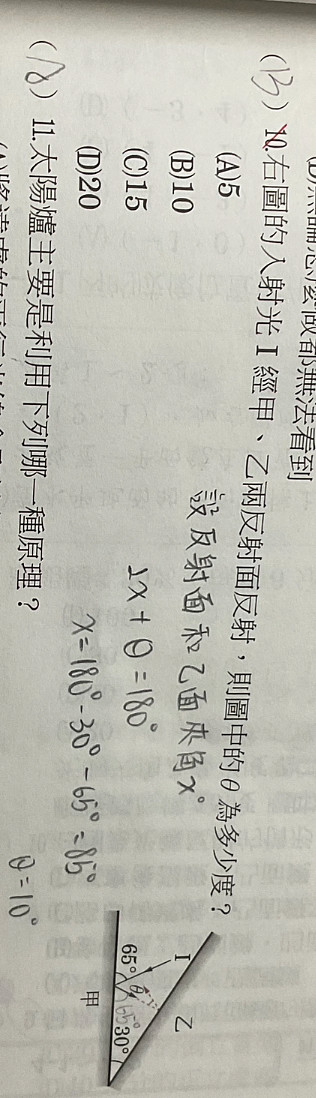 無論怎麼做都無法看到
(B) 10.右圖的入射光 I 經甲、乙兩反射面反射，則圖中的 θ 為多少度？
(A)5
(B)10
(C)15
(D)20
設反射面和乙面夾角x°
2x + θ = 180°
x = 180° - 30° - 65° = 85°
θ = 10°
I
乙
65°
θ
65°
30°
甲
11.太陽爐主要是利用下列哪一種原理？